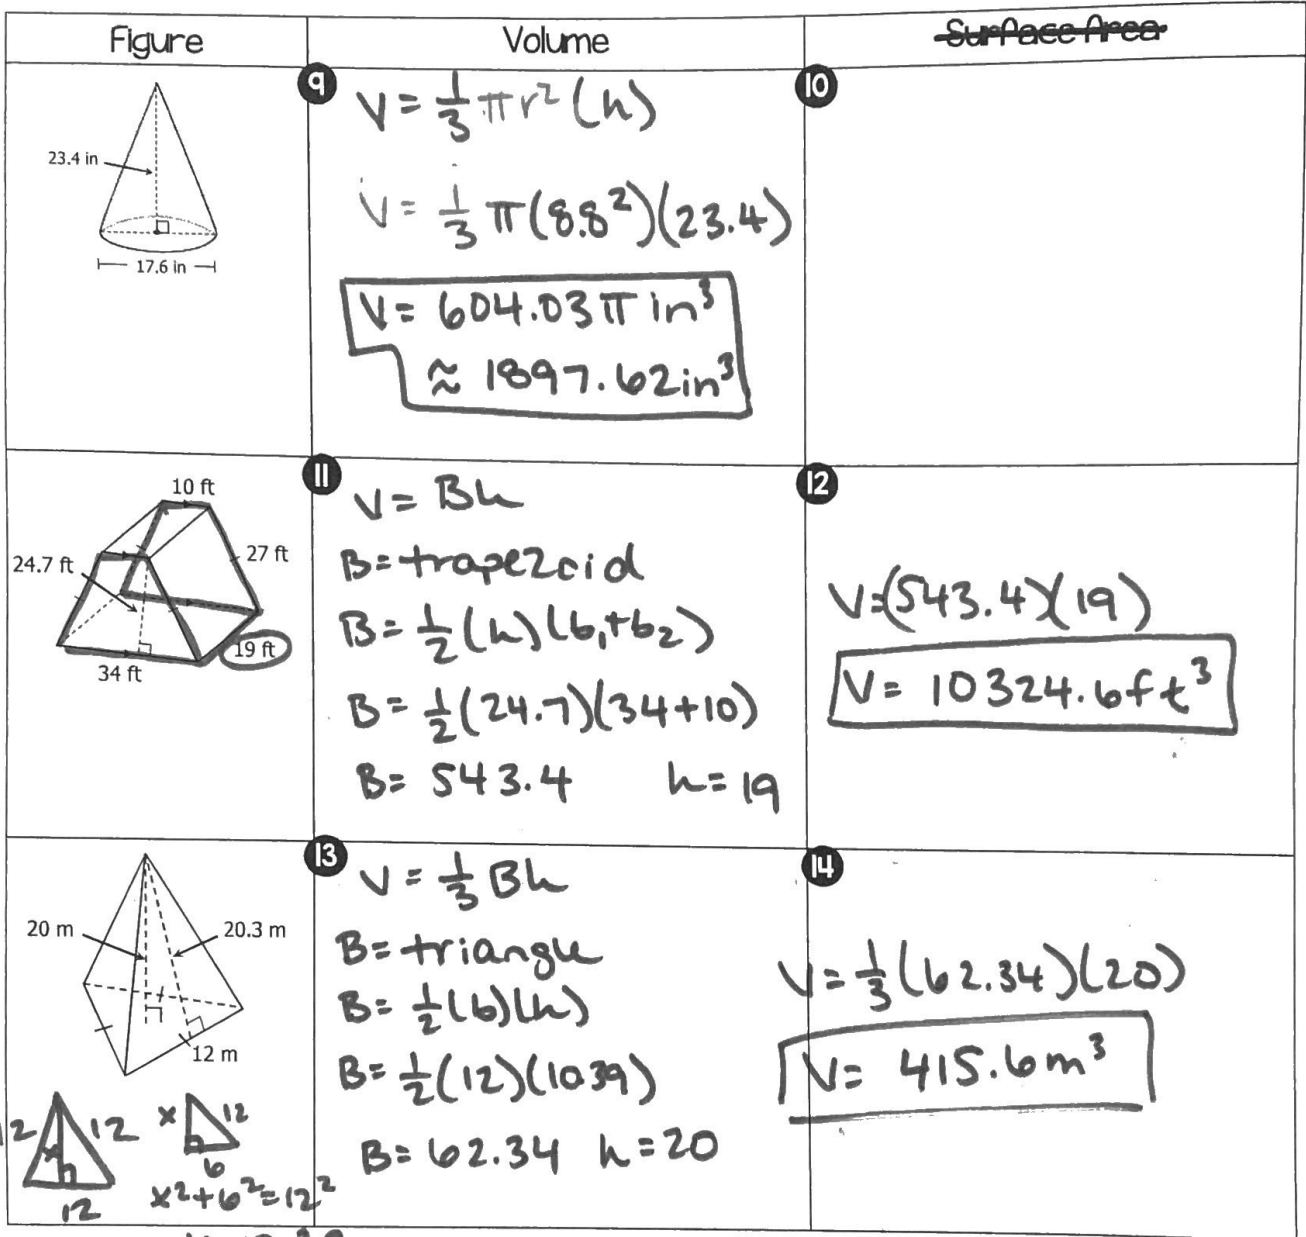 Figure
Volume
Surface Area
23.4 in
17.6 in
9
V = 1/3 πr² (h)
V = 1/3 π(8.8²)(23.4)
V = 604.03π in³
≈ 1897.62in³
10
10 ft
24.7 ft
27 ft
19 ft
34 ft
11
V = Bh
B = trapezoid
B = 1/2 (h)(b₁+b₂)
B = 1/2 (24.7)(34+10)
B = 543.4 h = 19
12
V=(543.4)(19)
V = 10324.6ft³
20 m
20.3 m
12 m
12 12 x 12
x 6
12 x²+6²=12²
13
V = 1/3 Bh
B = triangle
B = 1/2 (b)(h)
B = 1/2 (12)(10.39)
B = 62.34 h = 20
14
V = 1/3 (62.34)(20)
V = 415.6m³